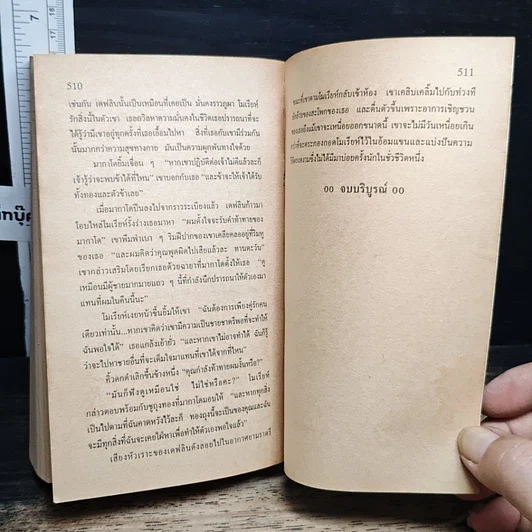 510
เช่นกัน เดฟลินนั้นเป็นเหมือนที่เคยเป็น มั่นคงราวภูผา โมเรียห์
รักสิ่งนี้ในตัวเขา เธอถวิลหาความมั่นคงในชีวิตเธอปรารถนาที่จะ
ได้รู้ว่ามีเขาอยู่ทุกครั้งที่เธอเอื้อมไปหา สิ่งที่เธอกับเขามีร่วมกัน
นั้นมากกว่าความสุขทางกาย มันเป็นความผูกพันทางใจด้วย
มากาโดยิ้มเจื่อน ๆ “หากเขาปฏิบัติต่อเจ้าไม่ดีแล้วละก็
เจ้ารู้ว่าจะพบข้าได้ที่ไหน” เขาบอกกับเธอ “และข้าจะให้เจ้าได้รับ
ทั้งทองและตัวข้าเลย”
เมื่อมากาโดปีนลงไปจากราวระเบียงแล้ว เดฟลินก้าวมา
โอบไหล่โมเรียห์รั้งร่างเธอมาหา “ผมตั้งใจจะรับคำท้าทายของ
มากาโด” เขาพึมพำเบา ๆ ริมฝีปากของเขาเคลียคลออยู่ที่ริมหู
ของเธอ “และผมคิดว่าคุณพูดผิดไปเสียแล้วละ ทานตะวัน”
เขากล่าวเสริมโดยเรียกเธอด้วยฉายาที่มากาโดตั้งให้เธอ “ดู
เหมือนมีผู้ชายมากมายแถว ๆ นี้ที่กำลังนึกปรารถนาให้ตัวเองมา
แทนที่ผมในคืนนี้นะ”
โมเรียห์เงยหน้าขึ้นยิ้มให้เขา “ฉันต้องการเพียงคู่รักคน
เดียวเท่านั้น...หากเขาคิดว่าเขามีความเป็นชายชาตรีพอที่จะทำให้
ฉันพอใจได้” เธอแกล้งเย้ายั่ว “และหากเขาไม่อาจทำได้ ฉันก็รู้
ว่าจะไปหาชายอื่นที่จะเต็มใจมาแทนที่เขาได้จากที่ไหน”
คิ้วดกดำเลิกขึ้นข้างหนึ่ง “คุณกำลังท้าทายผมงั้นหรือ?”
“มันก็ฟังดูเหมือนใช่ ไม่ใช่หรือคะ?” โมเรียห์
กล่าวตอบพร้อมกับชูถุงทองที่มากาโดมอบให้ “และหากทุกสิ่ง
เป็นไปตามที่ฉันคาดหวังไว้ละก็ ทองถุงนี้จะเป็นของคุณและฉัน
จะมีทุกสิ่งที่ฉันจะเคยใฝ่หาเพื่อทำให้ตัวเองพอใจแล้ว”
เสียงหัวเราะของเดฟลินดังลอยไปในอากาศยามราตรี
511
ขณะที่เขาตามโมเรียห์กลับเข้าห้อง เขาเคลิบเคลิ้มไปกับท่วงที
และสะโพกของเธอ และตื่นตัวขึ้นเพราะอาการเชิญชวน
แม้เขาจะเหนื่อยอ่อนขนาดนี้ เขาจะไม่มีวันเหนื่อยเกิน
กว่าที่จะตระกองกอดโมเรียห์ไว้ในอ้อมแขนและแบ่งปันความ
ซึ่งไม่ได้มีมาบ่อยครั้งนักในชั่วชีวิตหนึ่ง
๐๐ จบบริบูรณ์ ๐๐